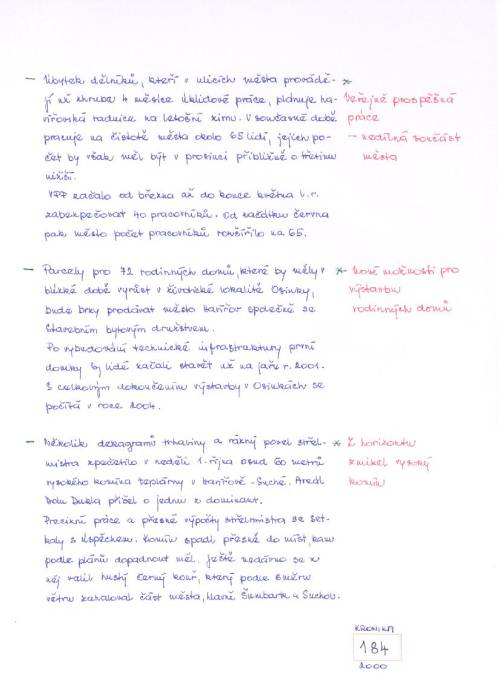 – Úbytek dělníků, kteří v ulicích města provádě-
jí už zhruba 4 měsíce úklidové práce, plánuje ha-
vířovská radnice na letošní zimu. V současné době
pracuje na čistotě města okolo 65 lidí, jejich po-
čet by však měl být v prosinci přibližně o třetinu
nižší.
VPP začalo od března až do konce května t.r.
zabezpečovat 40 pracovníků. Od začátku června
pak město počet pracovníků rozšířilo na 65.
* Veřejně prospěšná
práce
– nedílná součást
města
– Parcely pro 72 rodinných domů, které by měly v
blízké době vyrůst v životické lokalitě Osinky,
bude brzy prodávat město Havířov společně se
Stavebním bytovým družstvem.
Po vybudování technické infrastruktury první
domky by lidé začali stavět už na jaře r. 2001.
S celkovým dokončením výstavby v Osinkách se
počítá v roce 2004.
* Nové možnosti pro
výstavbu
rodinných domů
– Několik dekagramů trhaviny a rázný povel střel-
mistra zpečetilo v neděli 1. října osud 60 metrů
vysokého komína teplárny v Havířově-Suché. Areál
Dolu Dukla přišel o jednu z dominant.
Precizní práce a přesné výpočty střelmistra se set-
kaly s úspěchem. Komín spadl přesně do míst kam
podle plánů dopadnout měl. Ještě nedávno se z
něj valil hustý černý kouř, který podle směru
větru zahaloval část města, hlavně Šumbark a Suchou.
* Z horizontu
zmizel vysoký
komín
KRONIKA
184
2000